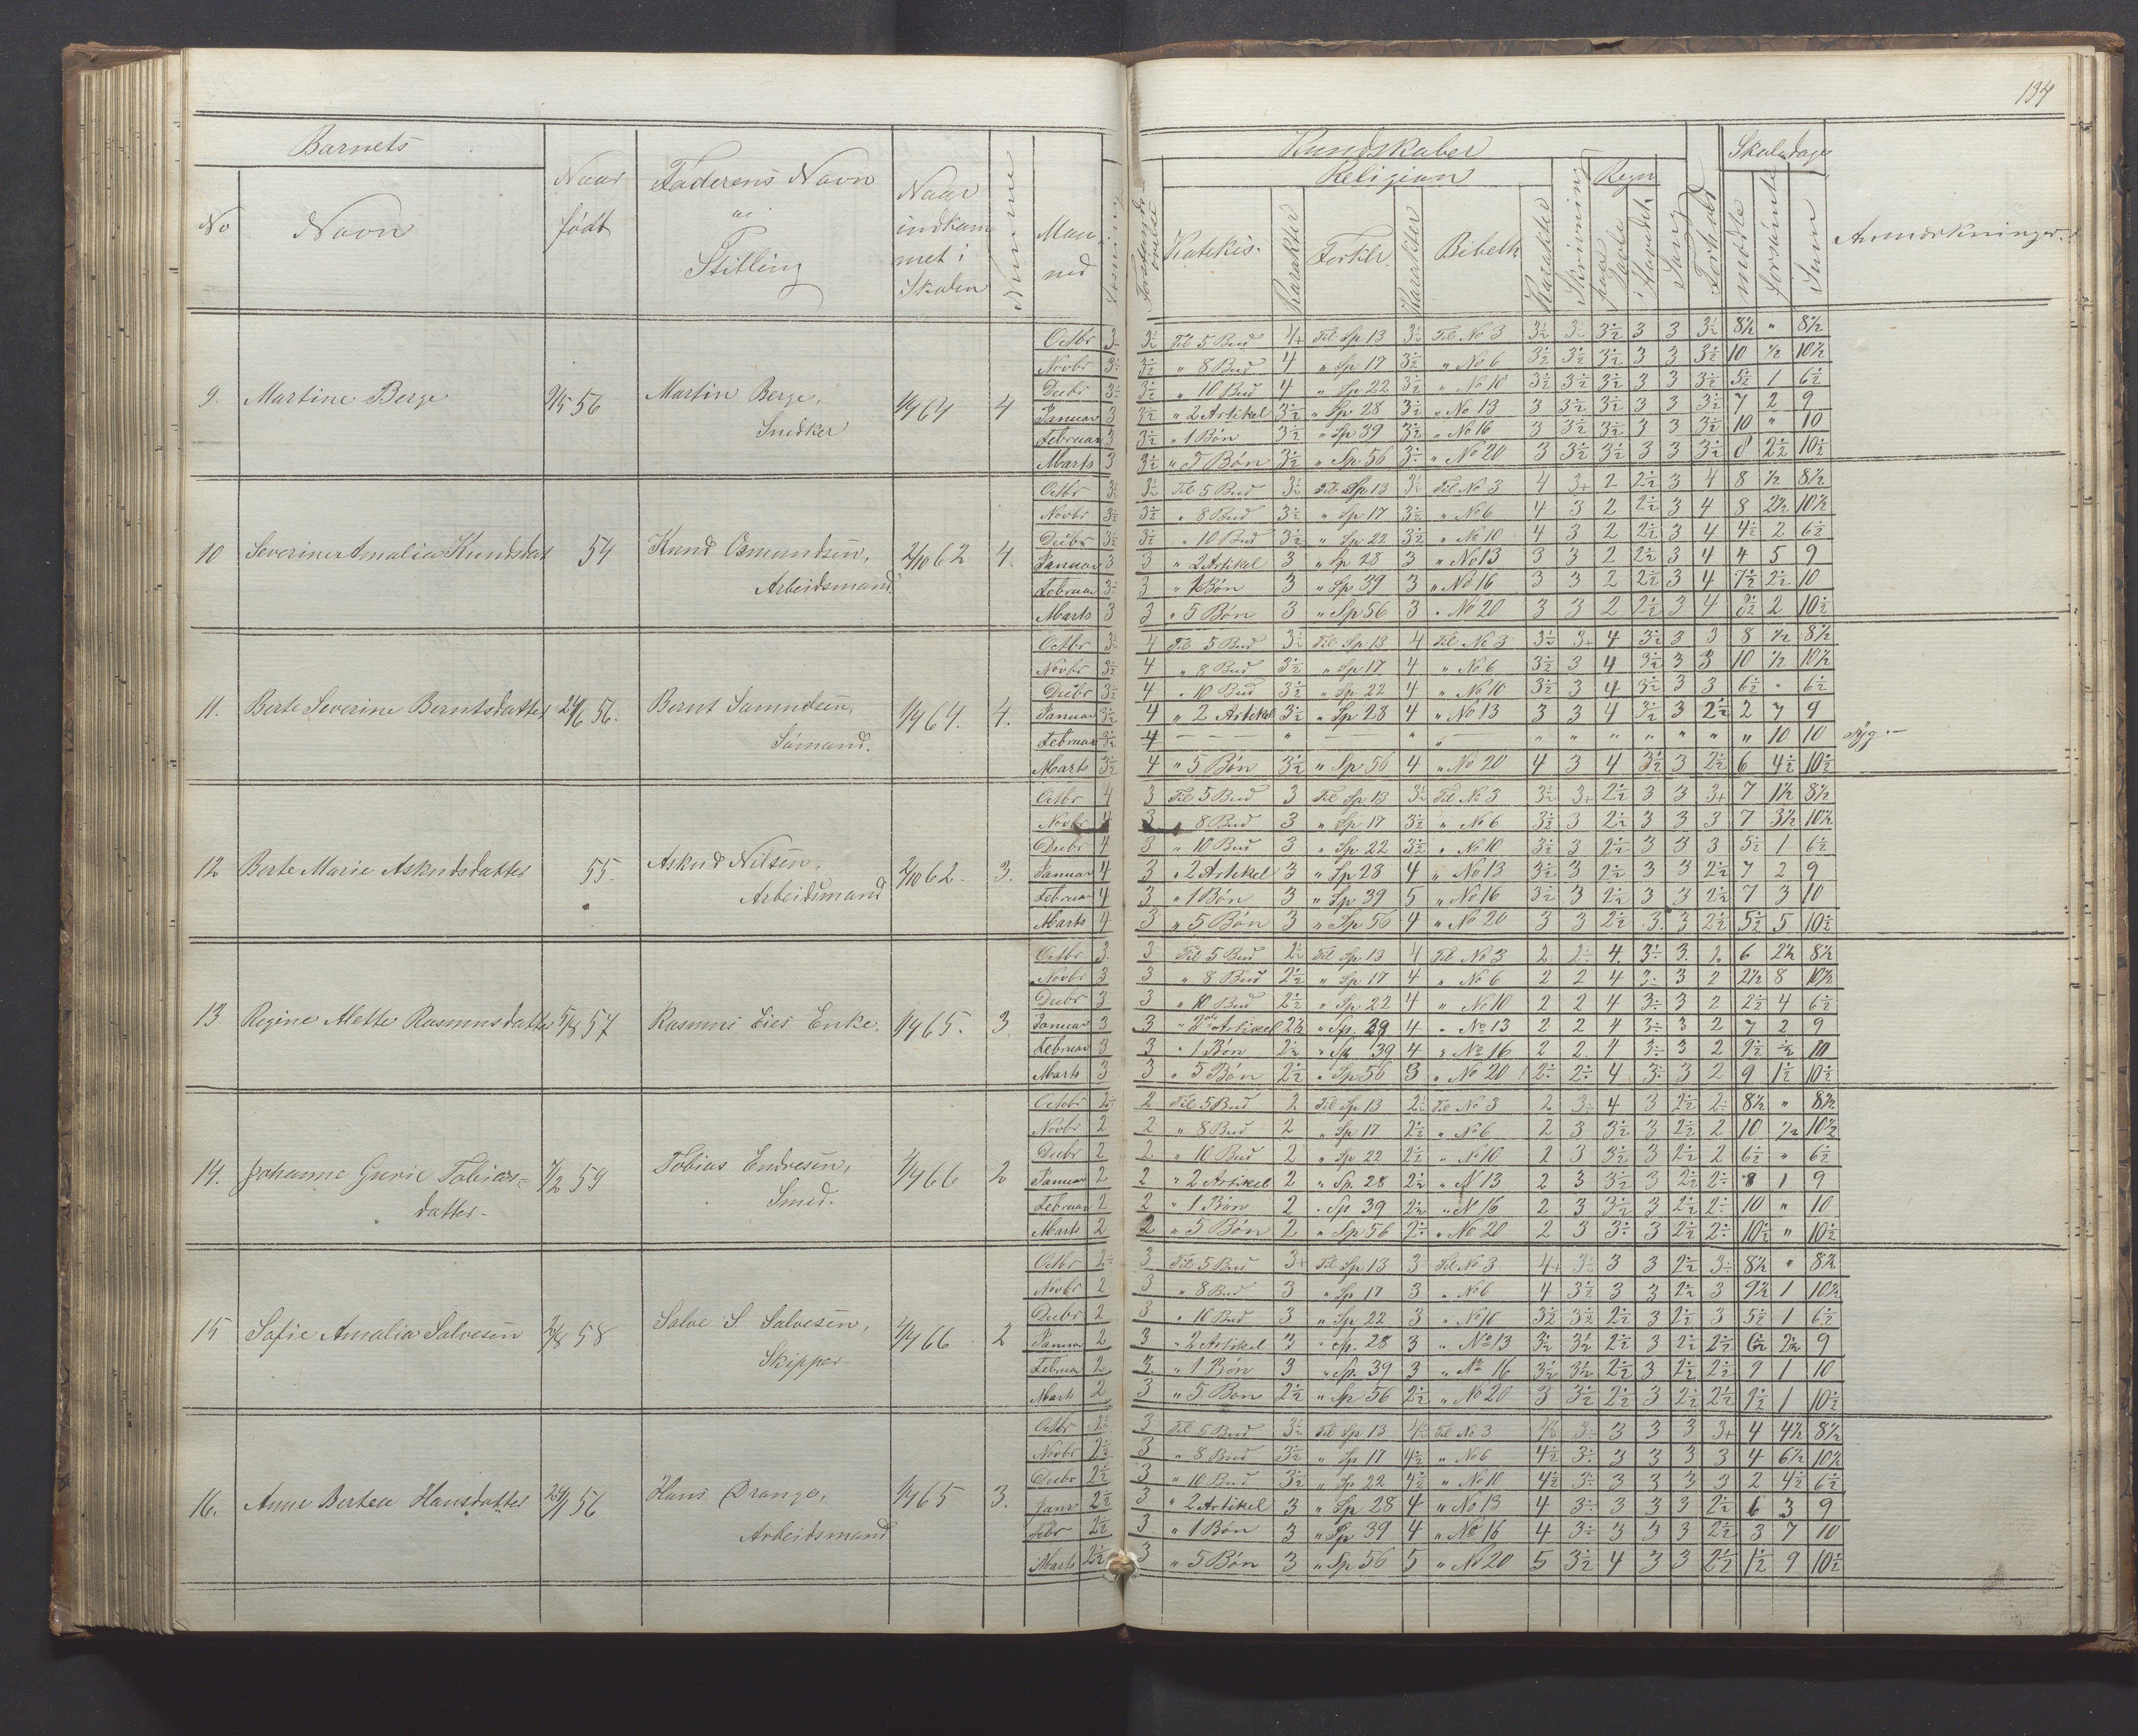 134
Barnets
No
Navn
Naar
født
Faderens Navn
og
Stilling
Naar
indkom
met i
Skolen
Nummer
Maa
ned
Læsning
Forstands-
øvelse
Kundskaber
Religion
Katekis.
Karakter
Forklr
Karakter
Bibelh
Karakter
Skrivning
Regn
paa
Tavle
i
Hovedet
Sang
Forhold
Skoledage
mødte
forsømte
Sum
Anmærkninger.
9. Martine Berge 9/5 56 Martin Berge, 1/4 64 4
Snedker
Octbr 3 3½ Til 5 Bud 4+ Til Sp 13 3½ Til No 3 3½ 3½ 3½ 3 3 3½ 8½ " 8½
Novbr 3÷ 3½ " 8 Bud 4 " Sp 17 3½ " No 6 3½ 3½ 3½ 3 3 3½ 10 ½ 10½
Decbr 3÷ 3½ " 10 Bud 4 " Sp 22 3½ " No 10 3½ 3½ 3½ 3 3 3½ 5½ 1 6½
Januar 3 3½ " 2 Artikel 3½ " Sp 28 3½ " No 13 3 3½ 3½ 3 3 3½ 7 2 9
Februar 3 3½ " 1 Bøn 3½ " Sp 39 3½ " No 16 3 3½ 3½ 3 3 3½ 10 " 10
Marts 3 3½ " 5 Bøn 3½ " Sp. 56 3÷ " No 20 3 3½ 3½ 3 3 3½ 8 2½ 10½
10 Severine Amalia Knudsdat 54 Knud Osmundsen, 2/10 62 4.
Arbeidsmand
Octbr 3½ 3½ Til 5 Bud 3½ Til Sp 13 3½ Til No 3 4 3+ 2 2½ 3 4 8 ½ 8½
Novbr 3½ 3½ " 8 Bud 3½ " Sp 17 3½ " No 6 4 3 2 2½ 3 4 8 2½ 10½
Decbr 3½ 3½ " 10 Bud 3½ " Sp 22 3½ " No 10 4 3 2 2½ 3 4 4½ 2 6½
Januar 3 3 " 2 Artikel 3 " Sp 28 3 " No 13 3 3 2 2½ 3 4 4 5 9
Februar 3÷ 3 " 1 Bøn 3 " Sp 39 3 " No 16 3 3 2 2½ 3 4 7½ 2½ 10
Marts 3 3 " 5 Bøn 3 " Sp 56 3 " No 20 3 3 2 2½ 3 4 8½ 2 10½
11. Berte Severine Berntsdatter 24/6 56. Bernt Samuelsen, 1/4 64. 4.
Sømand.
Octbr 3½ 4 Til 5 Bud 3½ Til Sp 13 4 Til No 3 3½ 3+ 4 3½ 3 3 8 ½ 8½
Novbr 3½ 4 " 8 Bud 3½ " Sp 17 4 " No 6 3½ 3 4 3½ 3 3 10 ½ 10½
Decbr 3½ 4 " 10 Bud 3½ " Sp 22 4 " No 10 3½ 3 4 3½ 3 3 6½ " 6½
Januar 3½ 4 " 2 Artikel 3½ " Sp 28 4 " No 13 3 3 4 3½ 3 2½ 2 7 9
Februar 3½ 4 — — — " — — " " " " " " " " " 10 10 syg.—
Marts 3½ 4 " 5 Bøn 3½ " Sp 56 4 " No 20 4 3 4 3½ 3 2½ 6 4½ 10½
12 Berte Marie Askudsdatter 55. Askud Nilsen, 2/10 62. 3.
Arbeidsmand
Octbr 4 3 Til 5 Bud 3 Til Sp 13 3½ Til No 3 3½ 3+ 2½ 3 3 3+ 7 1½ 8½
Novbr 4 3 " 8 Bud 3 " Sp 17 3½ " No 6 3½ 3 2½ 3 3 3 7 3½ 10½
Decbr 4 3 " 10 Bud 3 " Sp 22 3½ " No 10 3½ 3 2½ 3 3 3 5½ 1 6½
Januar 4 3 " 2 Artikel 3 " Sp 28 4 " No 13 3½ 3 2½ 3 3 2½ 7 2 9
Februar 4 3 " 1 Bøn 3 " Sp 39 5 " No 16 3½ 3 2½ 3 3 2½ 7 3 10
Marts 4 3 " 5 Bøn 3 " Sp 56 4 " No 20 3 3 2½ 3. 3 2½ 5½ 5 10½
13 Regine Mette Rasmusdatter 5/8 57 Rasmus Eies Enke. 1/4 65. 3.
Octbr 3. 3 Til 5 Bud 2½ Til Sp 13 4 Til No 3 2 2÷ 4. 3½ 3. 2 6 2½ 8½
Novbr 3 3 " 8 Bud 2½ " Sp 17 4 " No 6 2 2 4 3÷ 3 2 2½ 8 10½
Decbr 3 3 " 10 Bud 2½ " Sp. 22 4 " No 10 2 2 4 3÷ 3 2 2½ 4 6½
Januar 3 3 " 2de Artikel 2½ " Sp. 28 4 " No 13 2 2 4 3÷ 3 2 7 2 9
Februar 3 3 " 1 Bøn 2½ " Sp 39 4 " No 16 2 2 4 3÷ 3 2 9½ ½ 10
Marts 3 3 " 5 Bøn 2½ " Sp 56 3 " No 20 2÷ 2÷ 4 3÷ 3 2 9 1½ 10½
14. Johanne Gurie Tobias= 7/2 59 Tobias Endresen, 4/4 66 2
datter- Smed.
Octobr 2÷ 2 Til 5 Bud 2 Til Sp 13 2½ Til No 3 2 3÷ 4 3 2½ 2÷ 8½ " 8½
Novbr 2 2 " 8 Bud 2 " Sp 17 2½ " No 6 2 3 3½ 3 2½ 2 10 ½ 10½
Decbr 2 2 " 10 Bud 2 " Sp 22 2½ " No 10 2 3 3½ 3 2½ 2 6½ " 6½
Januar 2 2 " 2 Artikel 2 " Sp. 28 2½ " N 13 2 3 3½ 3 2½ 2÷ 8 1 9
Februar 2 2 " 1 Bøn 2 " Sp 39 2½ " No 16 2 3 3½ 3 2½ 2÷ 10 " 10
Marts 2 2 " 5 Bøn 2 " Sp 56 2÷ " No 20 2 3 3÷ 3 2½ 2÷ 10½ " 10½
15 Sofie Amalia Salvesen 2/8 58 Salve S. Salvesen, 4/4 66 2
Skipper.
Octbr 2÷ 3 Til 5 Bud 3+ Til Sp 13 3 Til No 3 4+ 3½ 3 3 2½ 3÷ 8½ " 8½
Novbr 2 3 " 8 Bud 3 " Sp 17 3 " No 6 4 3½ 3 3 2½ 3 9½ 1 10½
Decbr 2 3 " 10 Bud 3 " Sp. 22 3 " No 10 3½ 3½ 2½ 3 2½ 3 5½ 1 6½
Januar 2 3 " 2 Artikel 3 " Sp. 28 3 " No 13 3½ 3½ 2½ 3 2½ 2½ 6½ 2½ 9
Februar 2 3 " 1 Bøn 3 " Sp. 39 3 " No 16 3½ 3½ 2½ 3 2½ 2½ 9 1 10
Marts 2 3 " 5 Bøn 2½ " Sp 56 2½ " No 20 3 3½ 2½ 3 2½ 2½ 9½ 1 10½
16. Anne Bertea Hansdatter 24/1 56 Hans Drange, 1/4 65 3.
Arbeidsmand
Octbr 2½ 3 Til 5 Bud 3½ Til Sp 13 4½ Til No 3 4½ 3÷ 3 3 3 3+ 4 4½ 8½
Novbr 2½ 3 " 8 Bud 3½ " Sp 17 4½ " No 6 4½ 3÷ 3 3 3 3 4 6½ 10½
Decbr 2½ 3 " 10 Bud 3½ " Sp 22 4½ " No 10 4½ 3÷ 3 3 3 3 2 4½ 6½
Janr 2½ 3 " 2 Artikel 3 " Sp 28 4 " No 13 4 3÷ 3 3 3 2½ 6 3 9
Febr 2½ 3 " 1 Bøn 3 " Sp 39 4 " No 16 4 3÷ 3 3 3 2½ 3 7 10
Marts 2½ 3 " 5 Bøn 3 " Sp 56 5 " No 20 5 3½ 4 3 3 2½ 1½ 9 10½